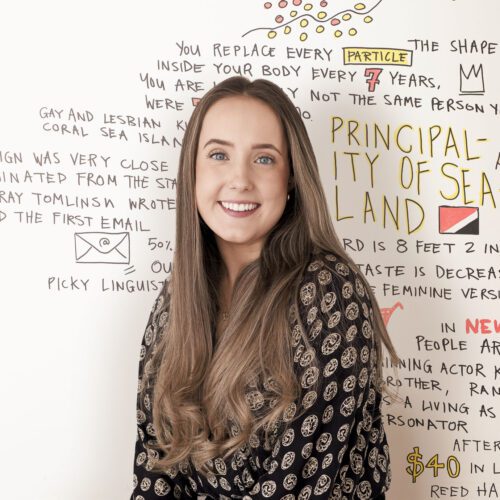 YOU REPLACE EVERY PARTICLE THE SHAPE
INSIDE YOUR BODY EVERY 7 YEARS,
YOU ARE NOT THE SAME PERSON Y
WERE
GAY AND LESBIAN
CORAL SEA ISLAN
IGN WAS VERY CLOSE
INATED FROM THE STA
RAY TOMLINSON WROTE
D THE FIRST EMAIL
50%
OU
PICKY LINGUIST
PRINCIPAL-
ITY OF SEA
LAND
RD IS 8 FEET 2 IN
TASTE IS DECREAS
E FEMININE VERSI
IN NEW
PEOPLE AR
NNING ACTOR K
ROTHER, RAN
S A LIVING AS
ERSONATOR
AFTER
$40 IN L
REED HA